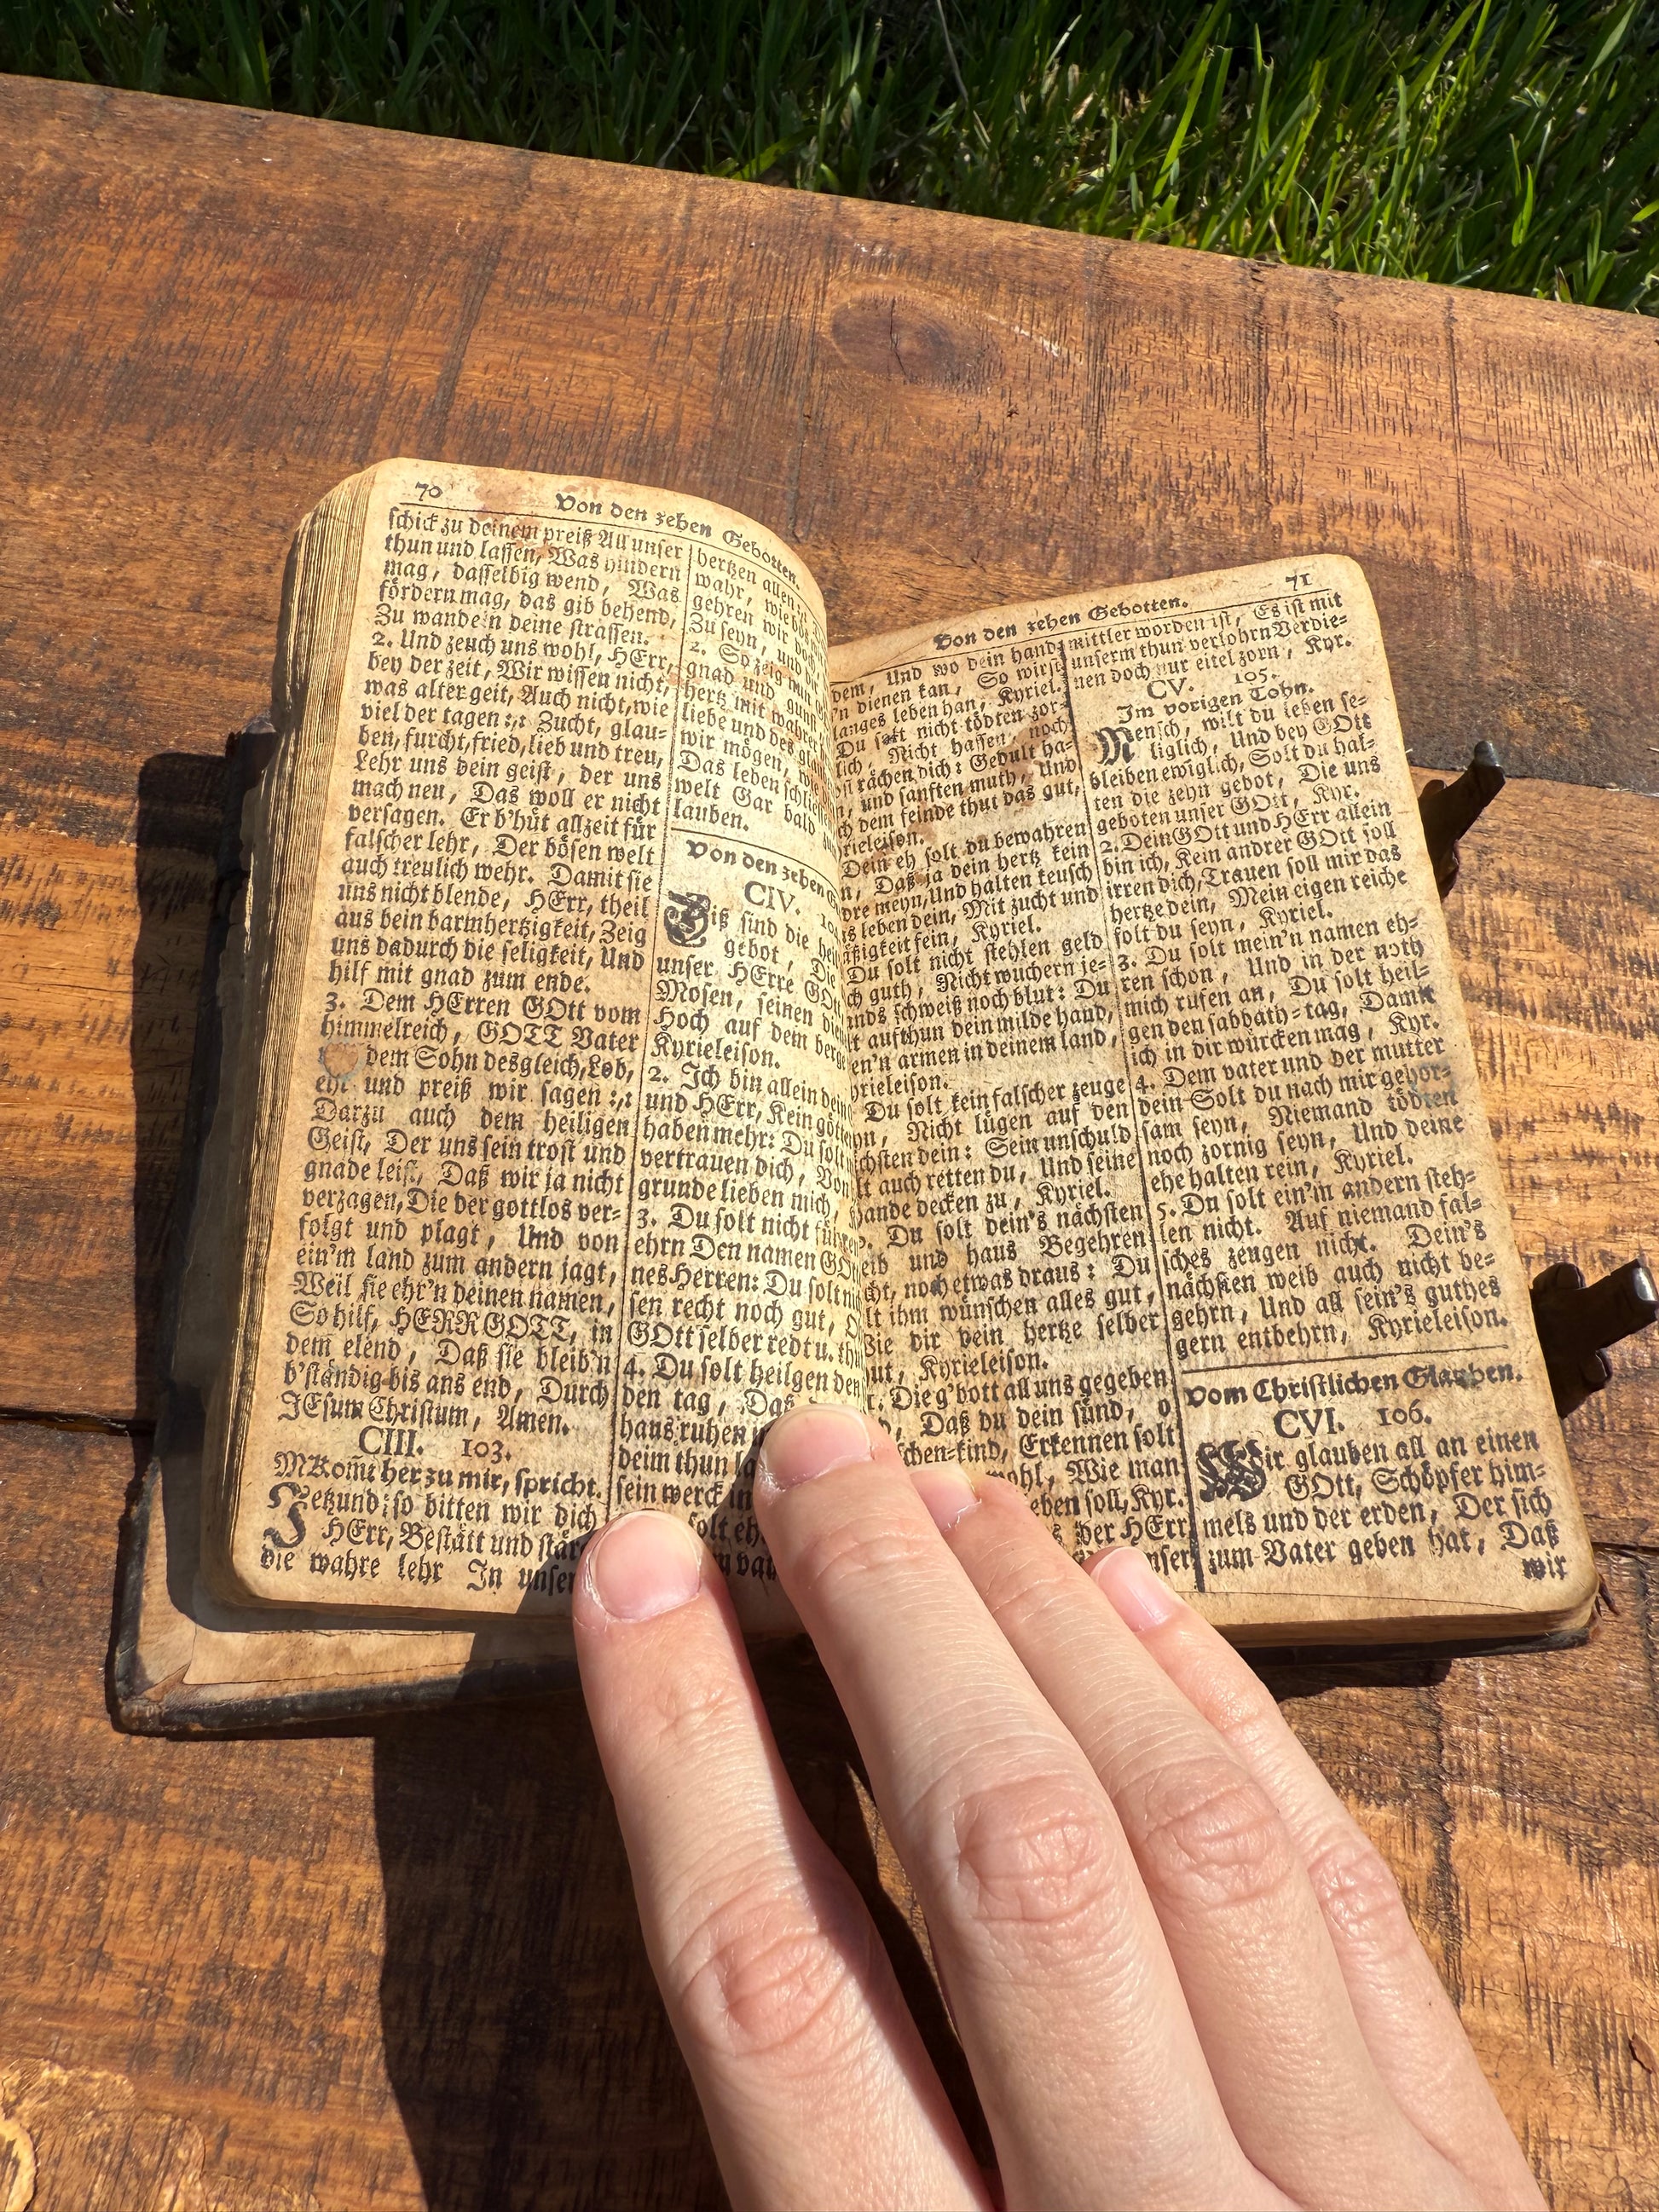 70
Von den zehen Gebotten.
schick zu deinem preiß All unser
thun und lassen, Was hindern
mag, dasselbig wend, Was
fördern mag, das gib behend,
Zu wandeln deine strassen.
2. Und zeuch uns wohl, HErr,
bey der zeit, Wir wissen nicht,
was alter geit, Auch nicht, wie
viel der tagen :,: Zucht, glau-
ben, furcht, fried, lieb und treu,
Lehr uns dein geist, der uns
mach neu, Das woll er nicht
versagen. Er b'hüt allzeit für
falscher lehr, Der bösen welt
auch treulich wehr. Damit sie
uns nicht blende, HErr, theil
aus dein barmhertzigkeit, Zeig
uns dadurch die seligkeit, Und
hilf mit gnad zum ende.
3. Dem HErren GOtt vom
himmelreich, GOTT Vater
dem Sohn desgleich, Lob,
ehr und preiß wir sagen :,:
Darzu auch dem heiligen
Geist, Der uns sein trost und
gnade leist, Daß wir ja nicht
verzagen, Die der gottlos ver-
folgt und plagt, Und von
ein'm land zum andern jagt,
Weil sie ehr'n deinen namen,
So hilf, HERR GOTT, in
dem elend, Daß sie bleib'n
b'ständig bis ans end, Durch
JEsum Christum, Amen.
CIII. 103.
M Kom̃t her zu mir, spricht.
Jetzund so bitten wir dich
HErr, Bestätt und stär-
die wahre lehr In unser
hertzen allen
wahr, wie
gehren wir doch
Zu seyn, und
2. So zeig nun
gnad und gunst
hertz mit wahrer
liebe und des
wir mögen,
Das leben
welt Gar bald
lauben.
Von den zehen
CIV.
Diß sind die
gebot, Die
unser HErre
Mosen, seinen
Hoch auf dem berge
Kyrieleison.
2. Ich bin allein dein
und HErr, Kein götter
haben mehr: Du solt
vertrauen dich, Von
grunde lieben mich,
3. Du solt nicht führen
ehrn Den namen
nes Herren: Du solt
sen recht noch gut,
GOtt selber redt u. thut
4. Du solt heilgen den
den tag, Daß
haus ruhen
deim thun
sein werck in
solt
71
Von den zehen Gebotten.
dem, Und wo dein hand
'n dienen kan, So wirst
langes leben han, Kyriel.
Du solt nicht tödten zor-
lich, Nicht hassen, noch
rächen dich: Gedult ha-
n, und sanften muth, Und
ch dem feinde thut das gut,
rieleison.
Dein eh solt du bewahren
n, Daß ja dein hertz kein
dre meyn, Und halten keusch
s leben dein, Mit zucht und
äßigkeit fein, Kyriel.
Du solt nicht stehlen geld
ch guth, Nicht wuchern je-
nds schweiß noch blut: Du
t aufthun dein milde hand,
en'n armen in deinem land,
rieleison.
Du solt kein falscher zeuge
yn, Nicht lügen auf den
chsten dein: Sein unschuld
lt auch retten du, Und seine
ande decken zu, Kyriel.
Du solt dein's nächsten
eib und haus Begehren
cht, noch etwas draus: Du
lt ihm wünschen alles gut,
Wie dir dein hertze selber
ut, Kyrieleison.
Die g'bott all uns gegeben
Daß du dein sünd, o
schen-kind, Erkennen solt
wohl, Wie man
eben soll, Kyr.
der HErr
unser
mittler worden ist, Es ist mit
unserm thun verlohrn Verdie-
nen doch nur eitel zorn, Kyr.
CV. 105.
Im vorigen Tohn.
Mensch, wilt du leben se-
liglich, Und bey GOtt
bleiben ewiglich, Solt du hal-
ten die zehn gebot, Die uns
geboten unser GOtt, Kyr.
2. Dein GOtt und HErr allein
bin ich, Kein andrer GOtt soll
irren dich, Trauen soll mir das
hertze dein, Mein eigen reiche
solt du seyn, Kyriel.
3. Du solt mein'n namen eh-
ren schon, Und in der noth
mich rufen an, Du solt heil-
gen den sabbath-tag, Damit
ich in dir würcken mag, Kyr.
4. Dem vater und der mutter
dein Solt du nach mir gehor-
sam seyn, Niemand tödten
noch zornig seyn, Und deine
ehe halten rein, Kyriel.
5. Du solt ein'm andern steh-
len nicht. Auf niemand fal-
sches zeugen nicht. Dein's
nächsten weib auch nicht be-
gehrn, Und all sein's guthes
gern entbehrn, Kyrieleison.
Vom Christlichen Glauben.
CVI. 106.
Wir glauben all an einen
GOtt, Schöpfer him-
mels und der erden, Der sich
zum Vater geben hat, Daß
wir